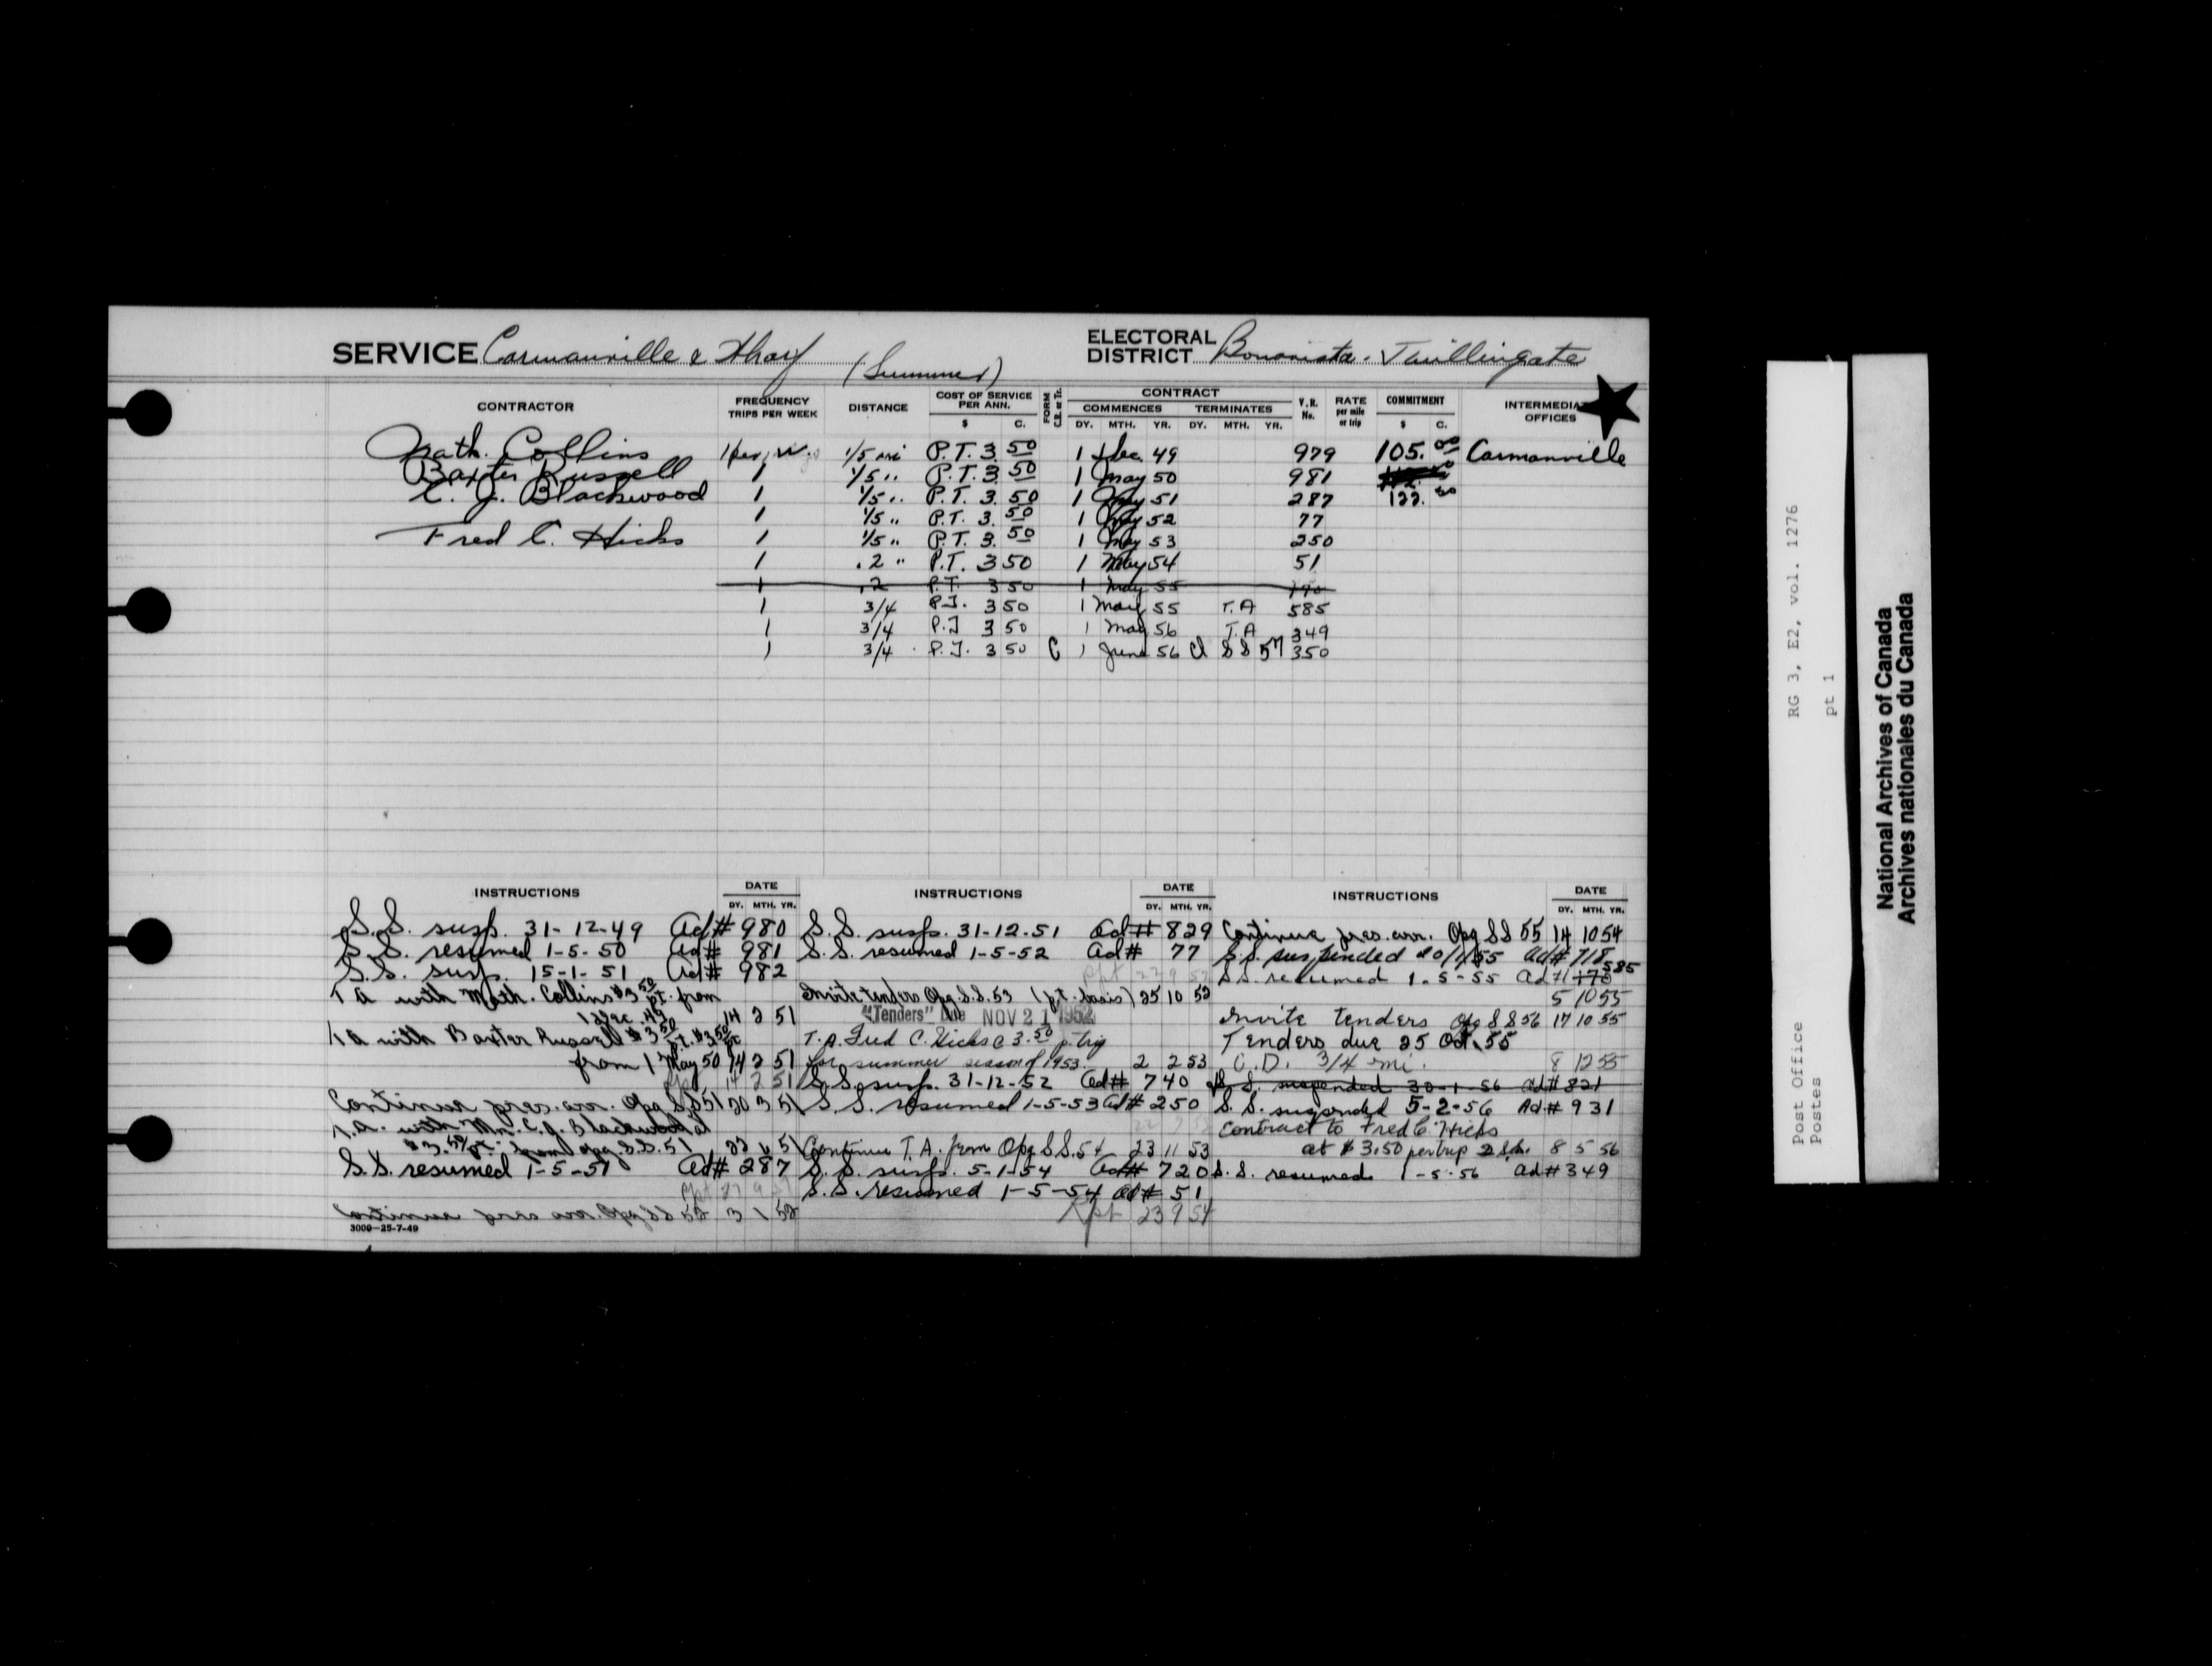 SERVICE Carmanville & Wharf (Summer)
ELECTORAL DISTRICT Bonavista - Twillingate
CONTRACTOR FREQUENCY TRIPS PER WEEK DISTANCE COST OF SERVICE PER ANN. $ C. FORM CONTRACT COMMENCES DY. MTH. YR. TERMINATES DY. MTH. YR. V.R. No. RATE per mile or trip COMMITMENT $ C. INTERMEDIA OFFICES
Math. Collins 1/5 mi P.T. 3.50 1 Dec. 49 979 105.00 Carmanville
Baxter Russell 1 1/5 " P.T. 3.50 1 May 50 981
C. J. Blackwood 1 1/5 " P.T. 3.50 1 May 51 287 122.50
1 1/5 " P.T. 3.50 1 May 52 77
Fred C. Hicks 1 1/5 " P.T. 3.50 1 May 53 250
1 .2 " P.T. 3 50 1 May 54 51
1 .2 P.T. 3 50 1 May 55 170
1 3/4 P.T. 3 50 1 May 55 T.A 585
1 3/4 P.T 3 50 1 May 56 T.A 349
1 3/4 P.T. 3 50 C 1 June 56 Cl S S 57 350
INSTRUCTIONS DATE DY. MTH. YR.
S.S. susp. 31-12-49 Ad# 980
S.S. resumed 1-5-50 Ad# 981
S.S. susp. 15-1-51 Ad# 982
T A with Math. Collins $3.50 pt. from
1 Dec. 49 14 2 51
T A with Baxter Russell $3.50 pt. $3.50 pt
from 1 May 50 14 2 51
14 2 51
Continue pres. arr. Opg S.S 51 20 3 51
T.A. with Mr. C.J. Blackwood at
$3.50 pt. from opg. S.S. 51 22 51
S.S. resumed 1-5-51 Ad# 287
Rpt 27 9 51
Continue pres arr. Opg S S 52 3 1 52
3009-25-7-49
INSTRUCTIONS DATE DY. MTH. YR.
S.S. susp. 31-12-51 Ad# 829
S.S. resumed 1-5-52 Ad# 77
Rpt 22 9 52
Invite tenders Opg. S.S. 53 (pt. basis) 25 10 52
"Tenders" Due NOV 21 1952
T.A. Fred C. Hicks @ 3.50 p. trip
for summer season of 1953. 2 2 53
S.S. susp. 31-12-52 Ad# 740
S.S. resumed 1-5-53 Ad# 250
Continue T.A. from Opg S S. 54 23 11 53
S.S. susp. 5-1-54 Ad# 720
S.S. resumed 1-5-54 Ad# 51
Rpt 23 9 54
INSTRUCTIONS DATE DY. MTH. YR.
Continue pres. arr. Opg S S 55 14 10 54
S.S. suspended 20/1/55 Ad# 718
S.S. resumed 1-5-55 Ad# 170 585
5 10 55
Invite tenders Opg S S 56 17 10 55
Tenders due 25 Oct. 55
C.D. 3/4 mi. 8 12 55
S.S. suspended 30-1-56 Ad# 821
S.S. suspended 5-2-56 Ad.# 931
Contract to Fred C. Hicks
at $3.50 per trip 8 5 56
S.S. resumed 1-5-56 Ad# 349
RG 3, E2, vol. 1276
pt 1
Post Office
Postes
National Archives of Canada
Archives nationales du Canada